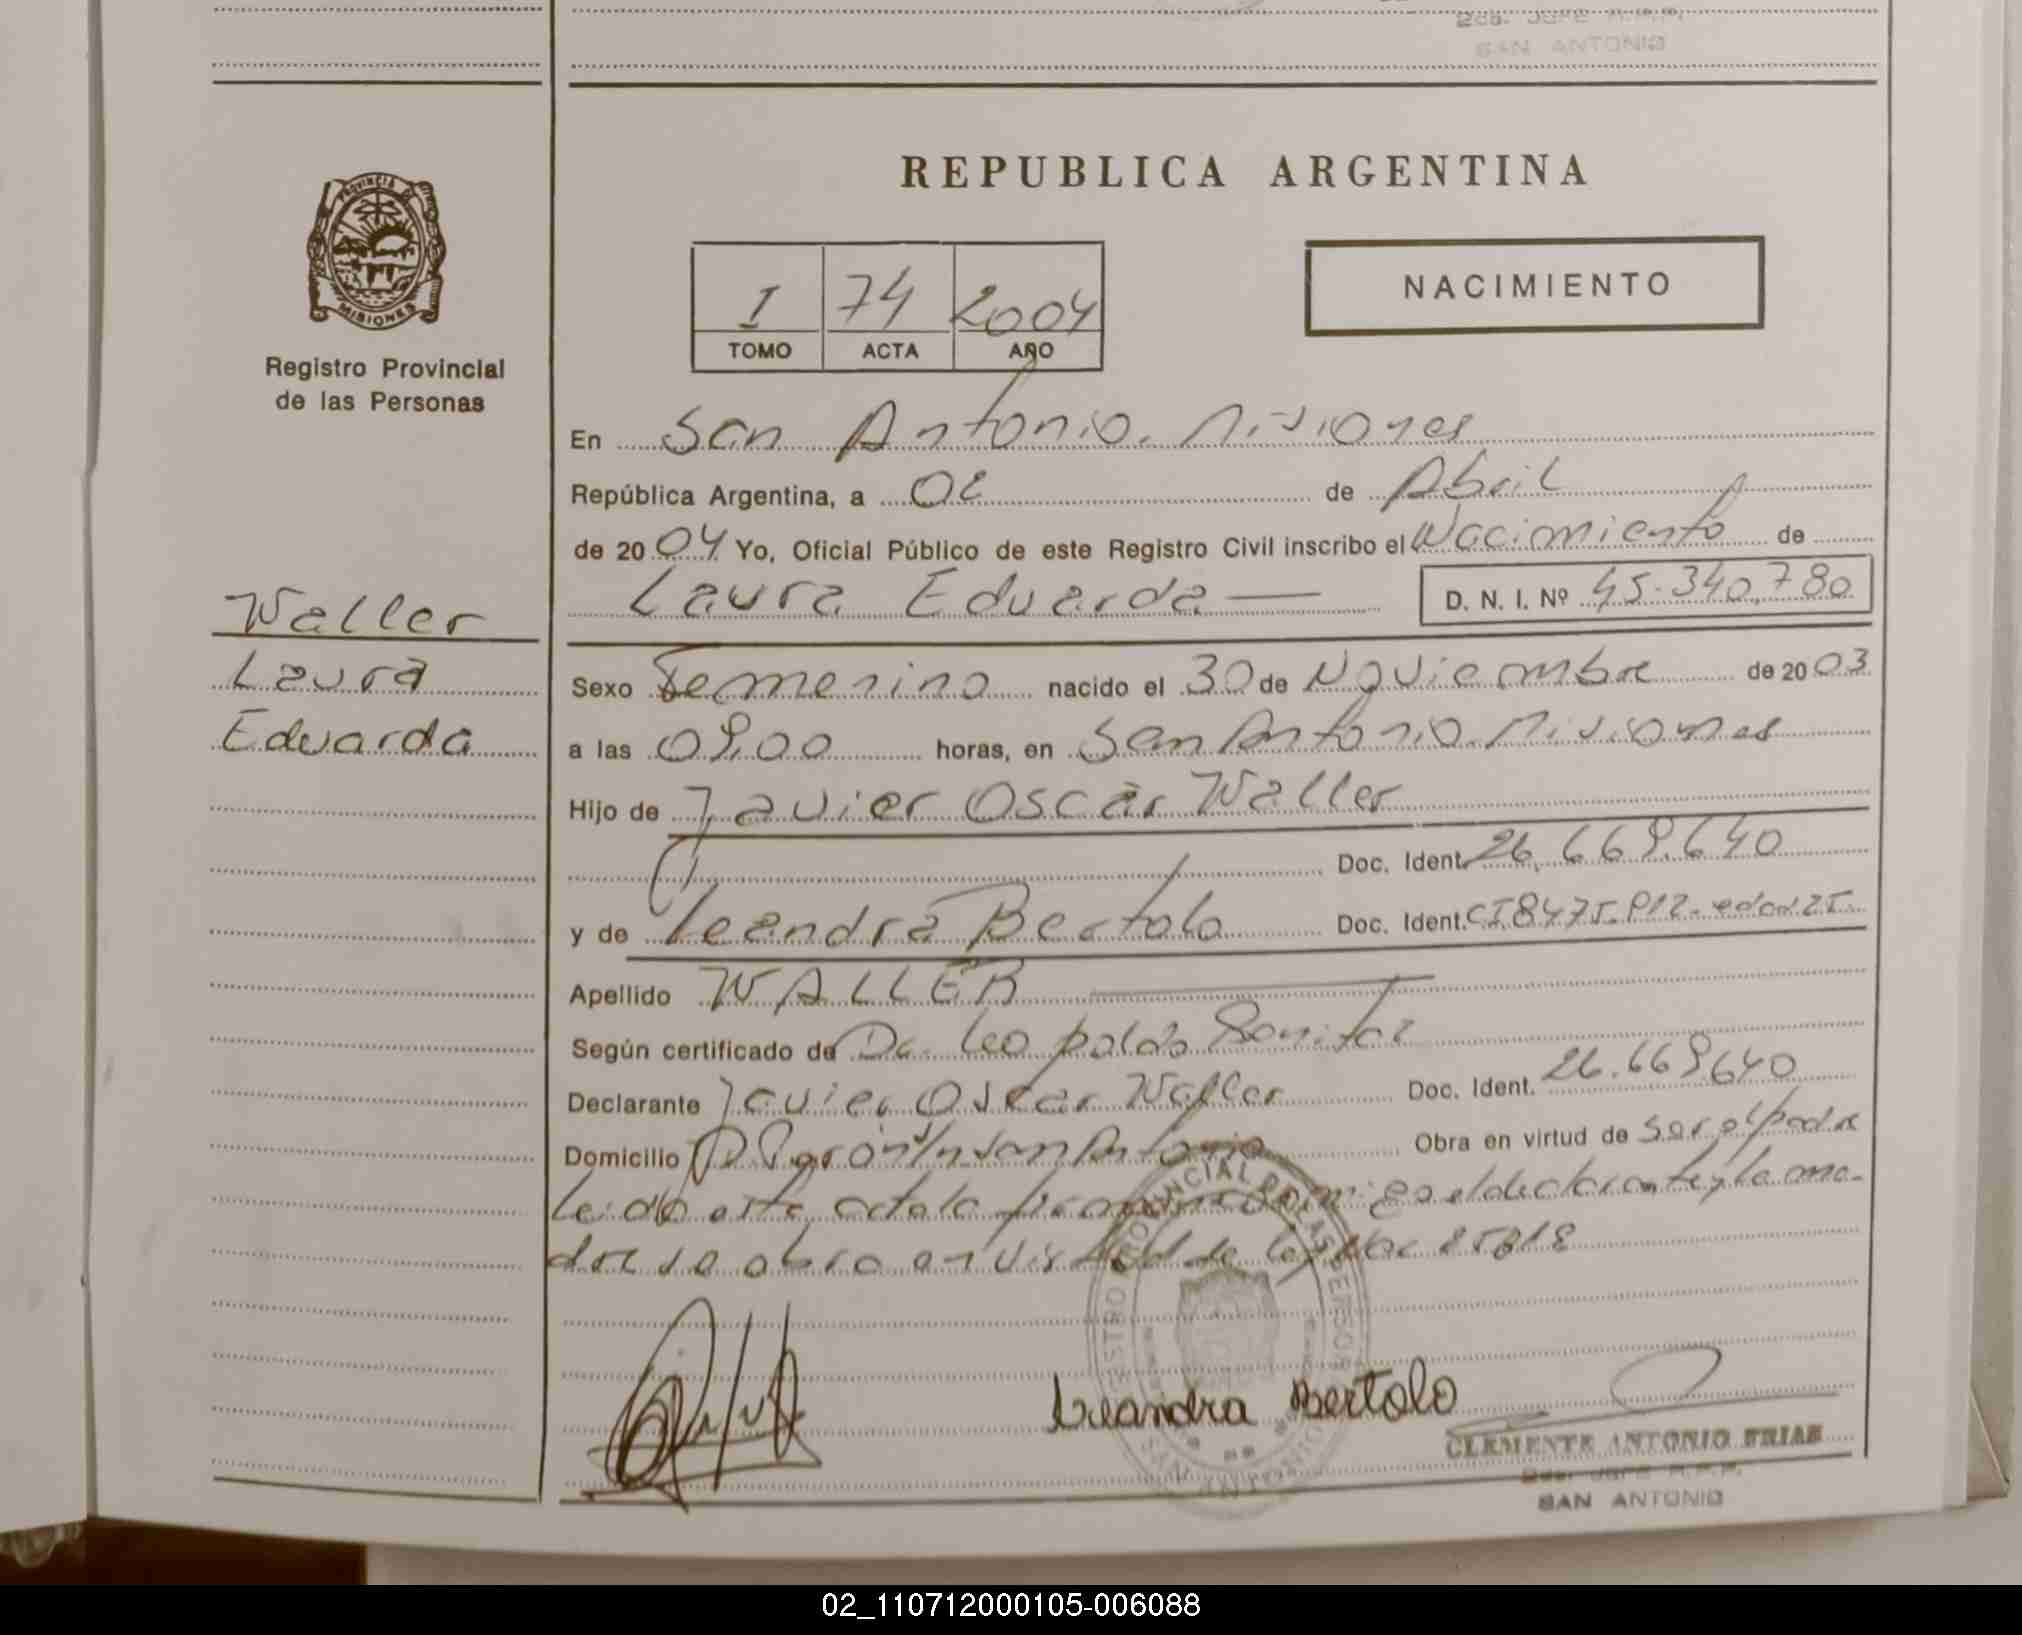 SAN ANTONIO
REPUBLICA ARGENTINA
PROVINCIA DE
MISIONES
Registro Provincial
de las Personas
I 74 2004
TOMO ACTA AÑO
NACIMIENTO
En San Antonio. Misiones
República Argentina, a 02 de Abril
de 2004 Yo, Oficial Público de este Registro Civil inscribo el Nacimiento de
Laura Eduarda — D. N. I. Nº 45.340.780
Waller
Laura
Eduarda
Sexo Femenino nacido el 30 de Noviembre de 2003
a las 09,00 horas, en San Antonio. Misiones
Hijo de Javier Oscar Waller
Doc. Ident. 26.669.640
y de Leandra Bertolo Doc. Ident. CI 8475.912- edad 25.
Apellido WALLER
Según certificado de Dr. Leopoldo Benitez
Declarante Javier Oscar Waller Doc. Ident. 26.669640
Domicilio San Antonio Obra en virtud de Ser el padre
Leido esta acta la firman conmigo el declarante y la ma-
dre obra en virtud de
REGISTRO PROVINCIAL DE LAS PERSONAS
SAN ANTONIO
Leandra Bertolo
CLEMENTE ANTONIO FRIAS
SAN ANTONIO
02_110712000105-006088